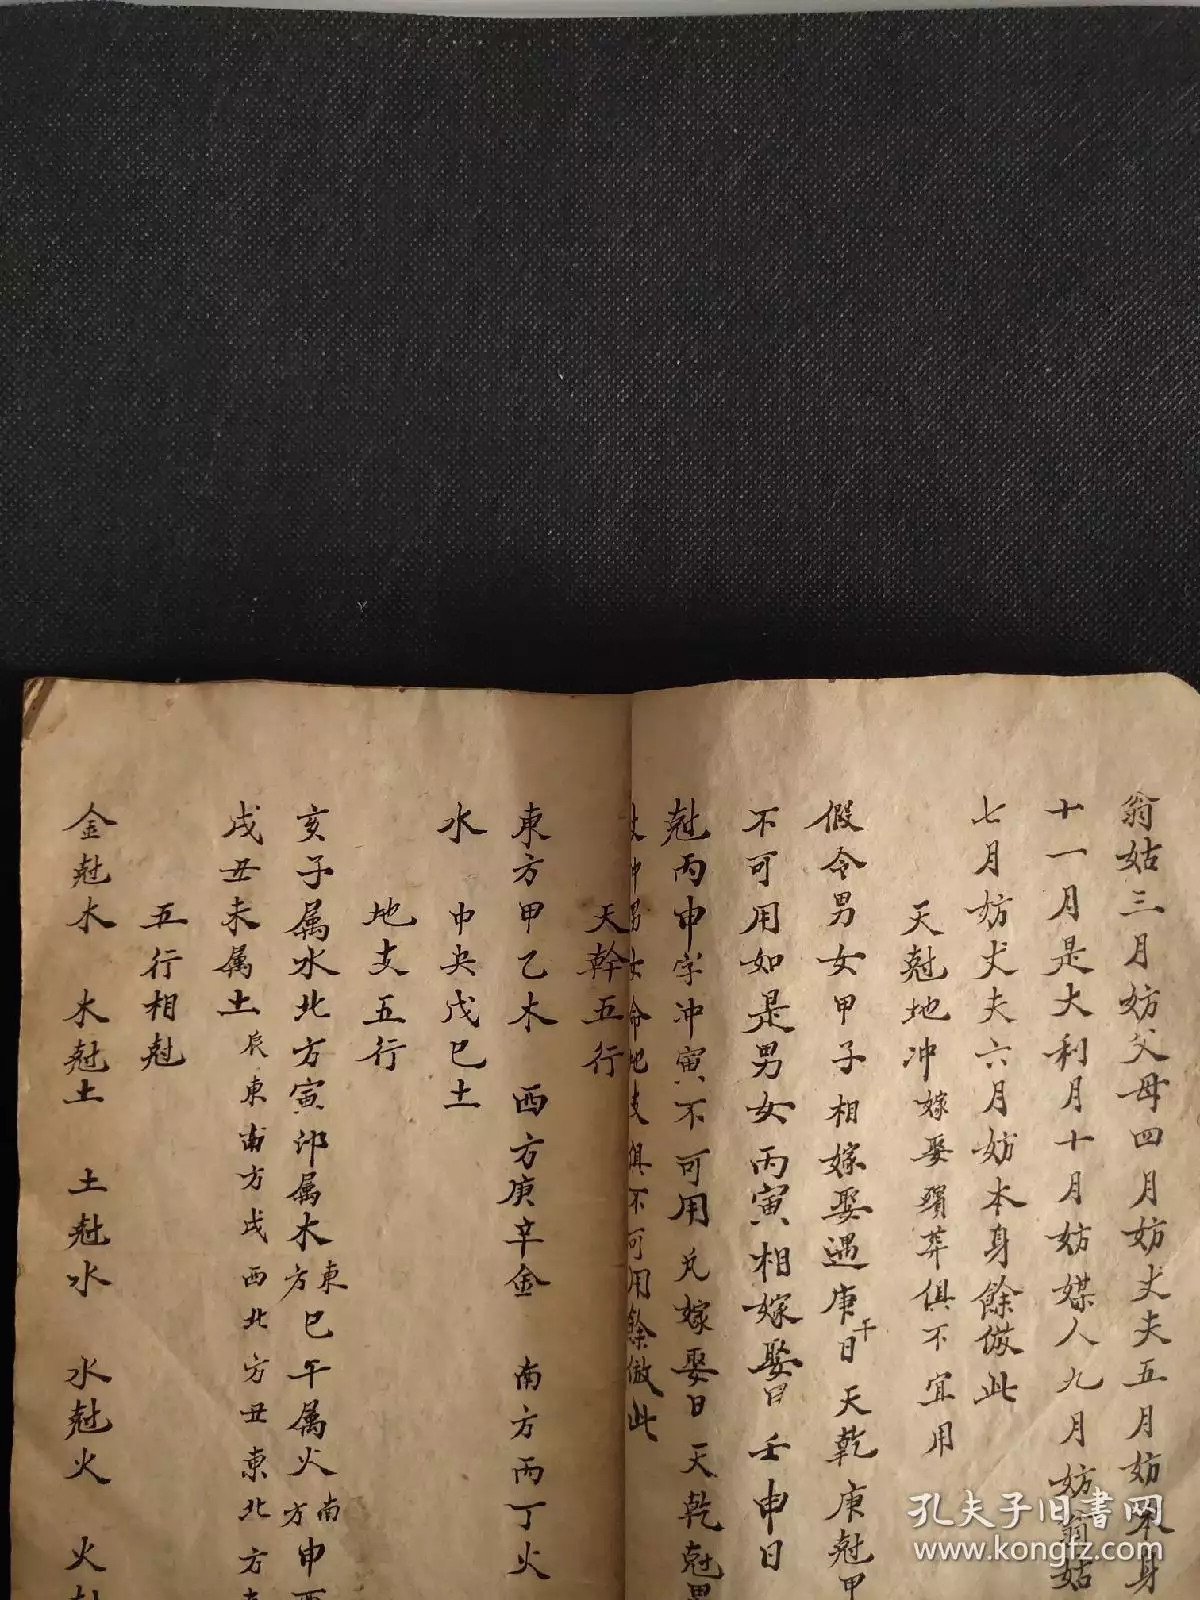 翁姑三月妨父母四月妨丈夫五月妨本身
十一月是大利月十月妨媒人九月妨翁姑
七月妨丈夫六月妨本身餘倣此
天尅地冲 嫁娶殯葬俱不宜用
假令男女甲子相嫁娶遇庚午日天乾庚尅甲
不可用如是男女丙寅相嫁娶日壬申日
尅丙申字冲寅不可用凡嫁娶日天乾尅男
冲男女命地支俱不可用餘倣此
天幹五行
東方甲乙木 西方庚辛金 南方丙丁火
水 中央戊巳土
地支五行
亥子属水北方寅卯属木東方巳午属火南方申酉
戌丑未属土辰東南方戌西北方丑東北方
五行相尅
金尅木 木尅土 土尅水 水尅火 火尅
孔夫子旧书网
www.kongfz.com